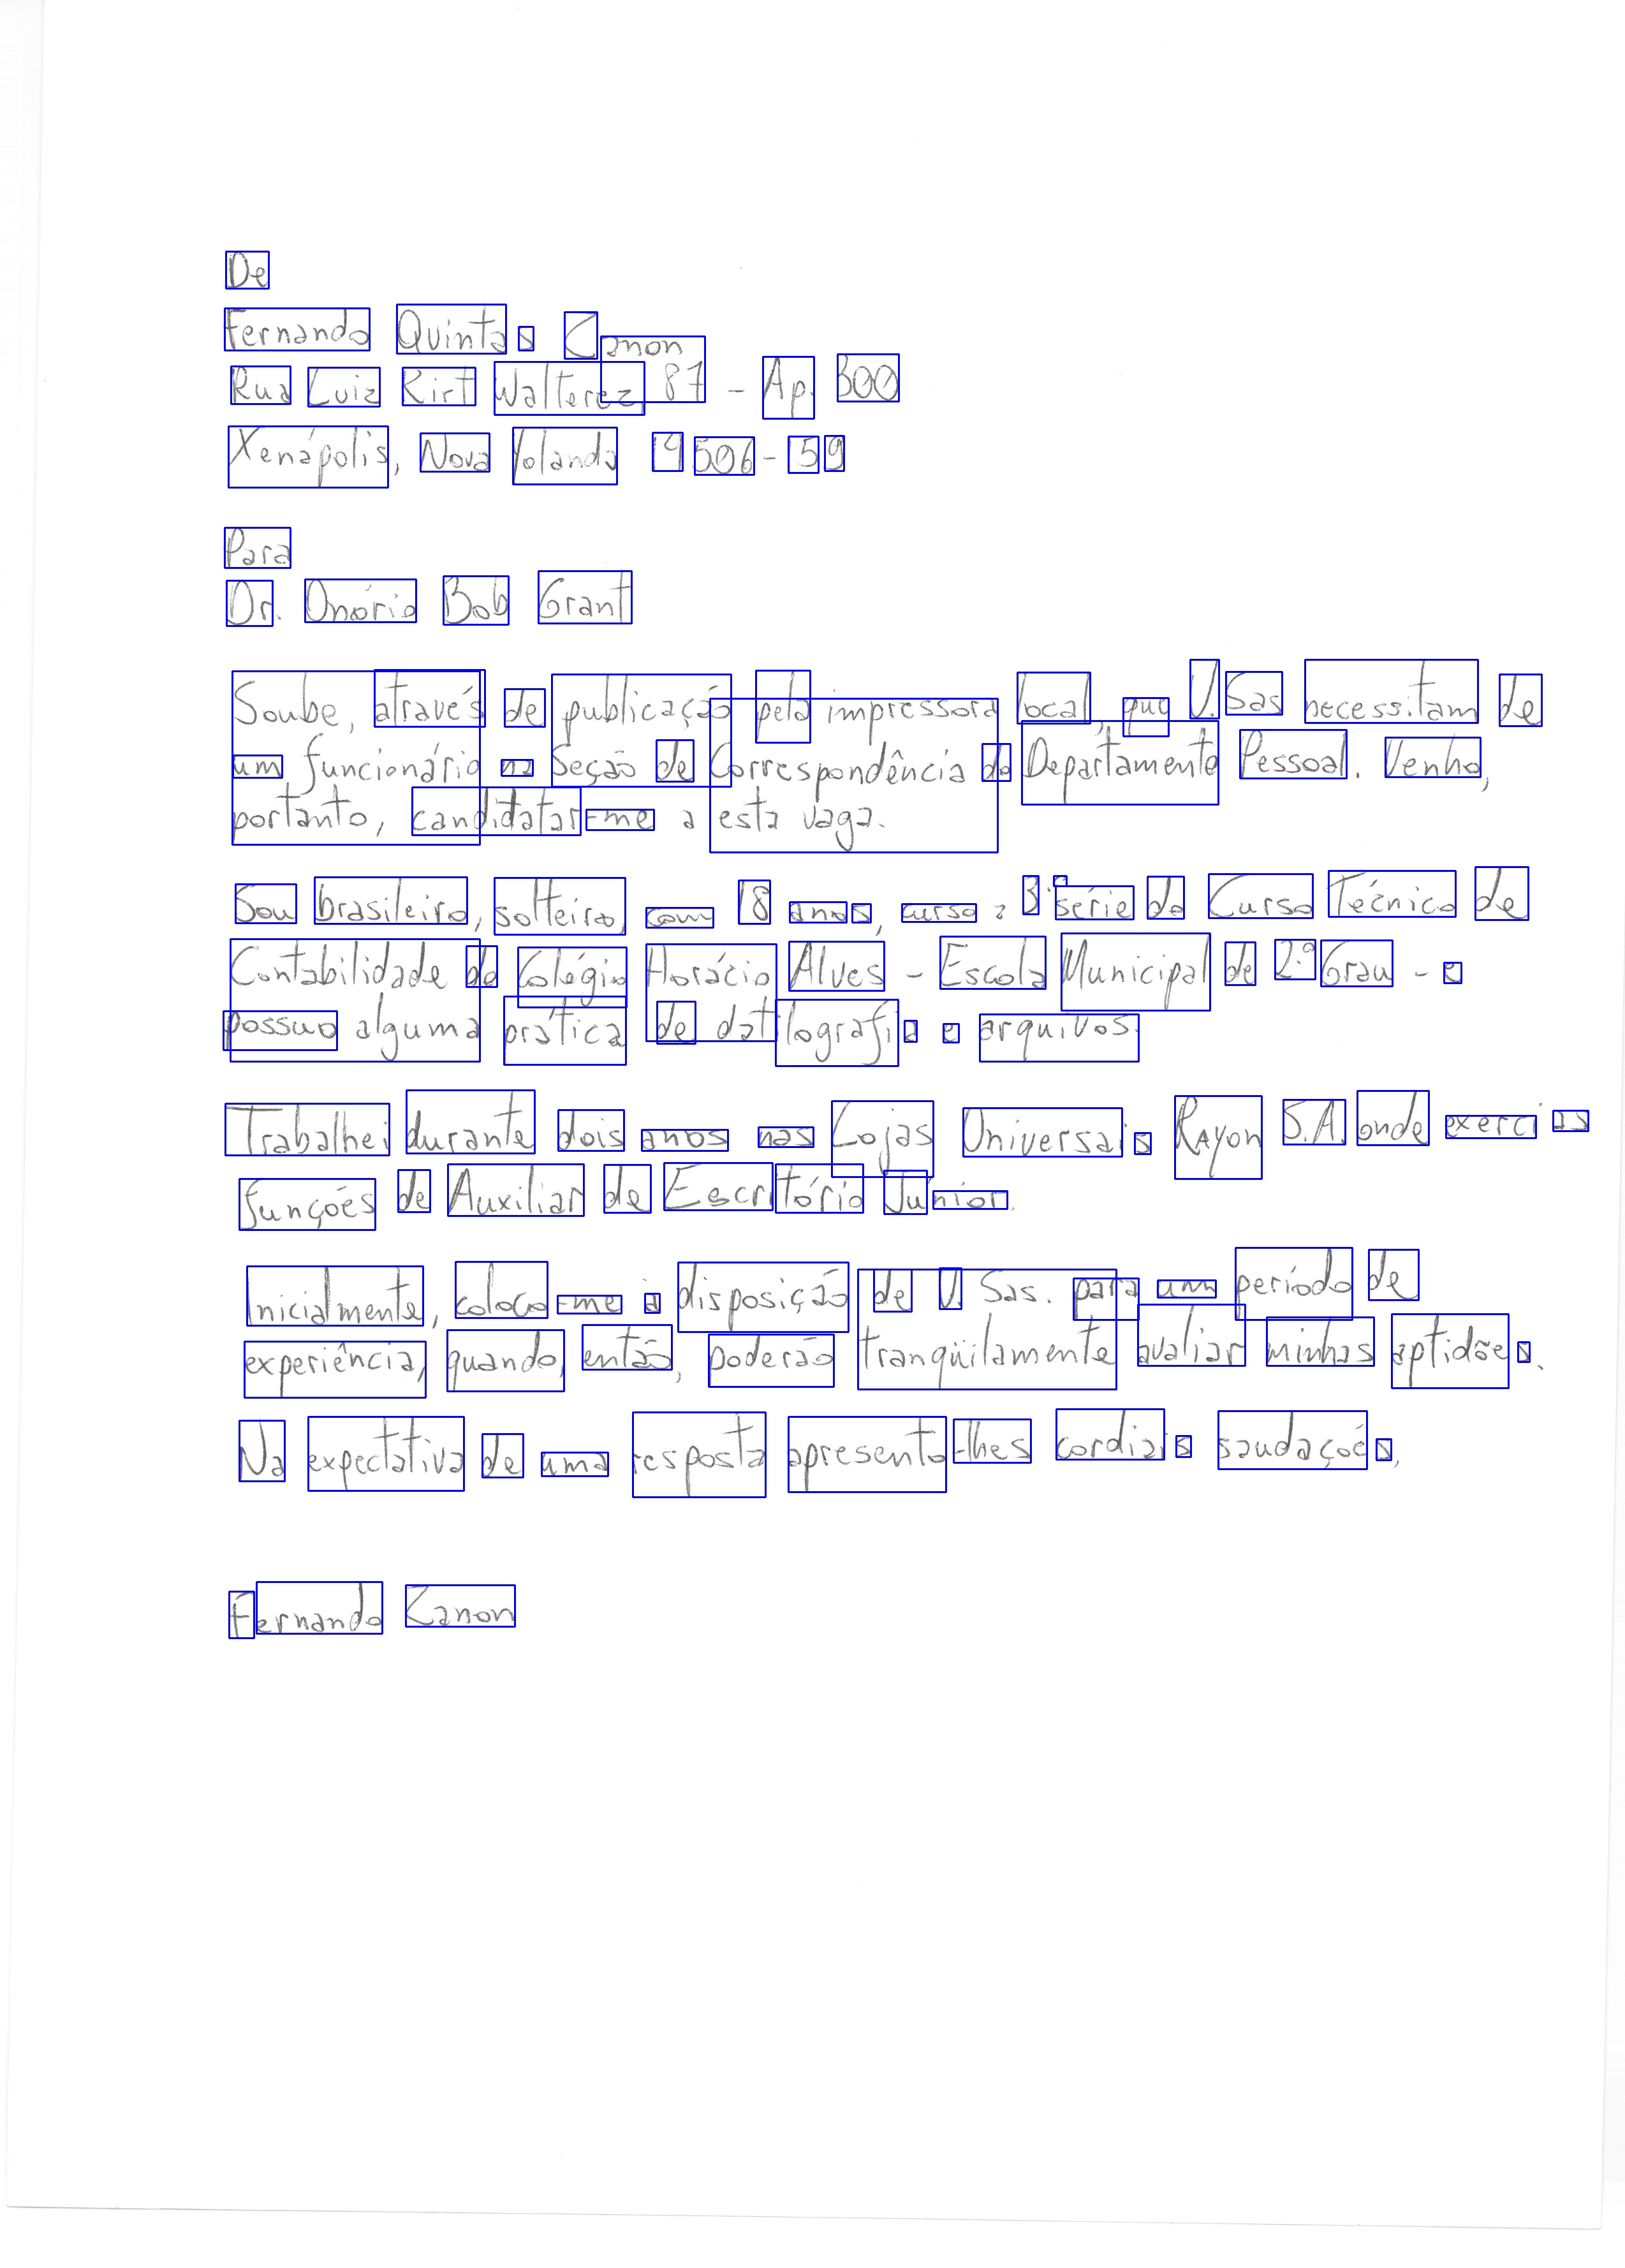 De
Fernando Quintas Canon
Rua Luiz Kirt Walterez, 87 - Ap. 300
Xenápolis, Nova Yolanda 19506-59
Para
Dr. Onório Bob Grant
Soube, através de publicação pela impressora local, que V. Sas necessitam de
um funcionário na Seção de Correspondência do Departamento Pessoal. Venho,
portanto, candidatar-me a esta vaga.
Sou brasileiro, solteiro, com 18 anos, curso a 3ª série do Curso Técnico de
Contabilidade do Colégio Horácio Alves - Escola Municipal de 2º Grau - e
possuo alguma prática de datilografia e arquivos.
Trabalhei durante dois anos nas Lojas Universais Rayon S.A. onde exerci as
funções de Auxiliar de Escritório Júnior.
Inicialmente, coloco-me à disposição de V. Sas. para um período de
experiência, quando, então, poderão tranqüilamente avaliar minhas aptidões.
Na expectativa de uma resposta apresento-lhes cordiais saudações,
Fernando Zanon